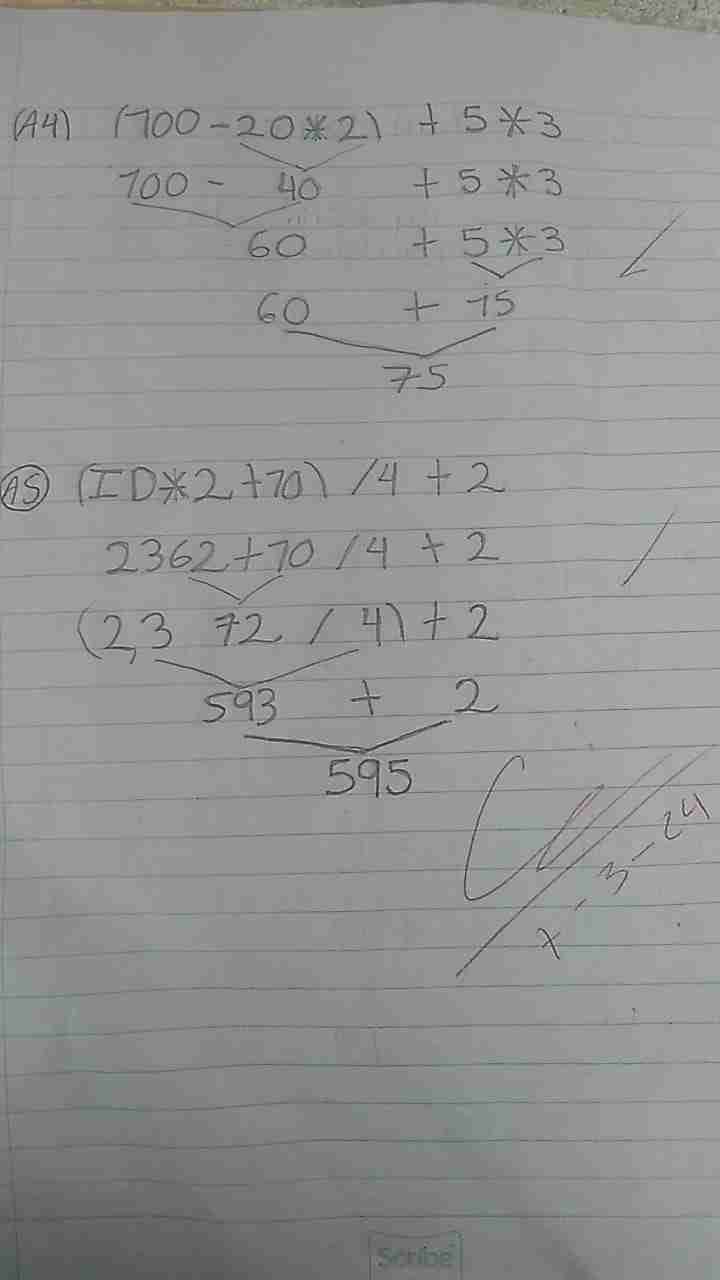 (A4) (100-20*2) + 5*3
100 - 40 + 5*3
60 + 5*3
60 + 15
75
A5 (ID*2+10) /4 + 2
2362+10 /4 + 2
(2,372 / 4) + 2
593 + 2
595
Scribe